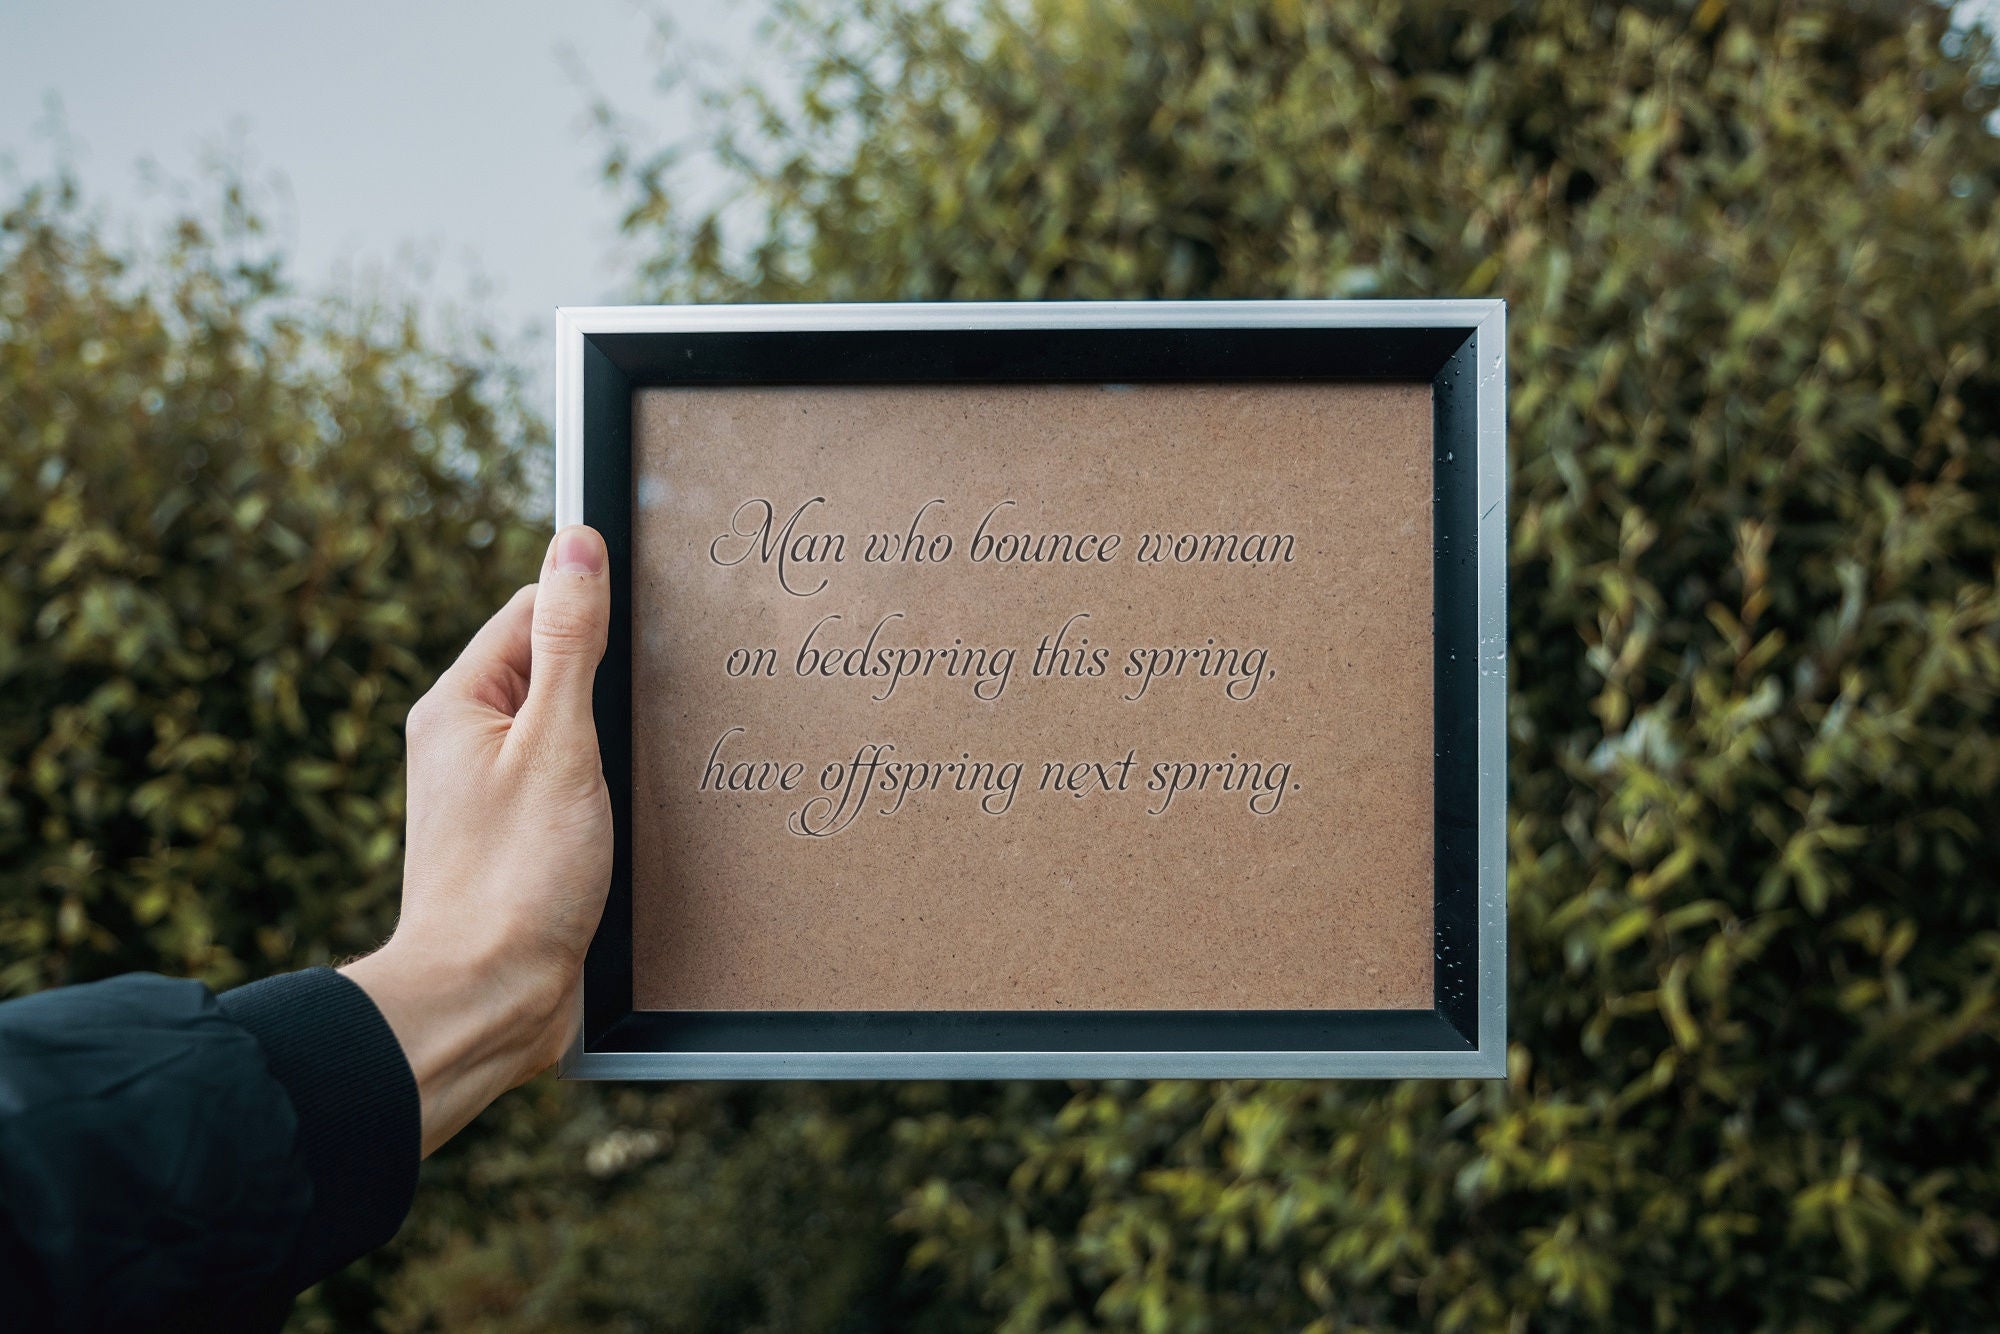 Man who bounce woman
on bedspring this spring,
have offspring next spring.